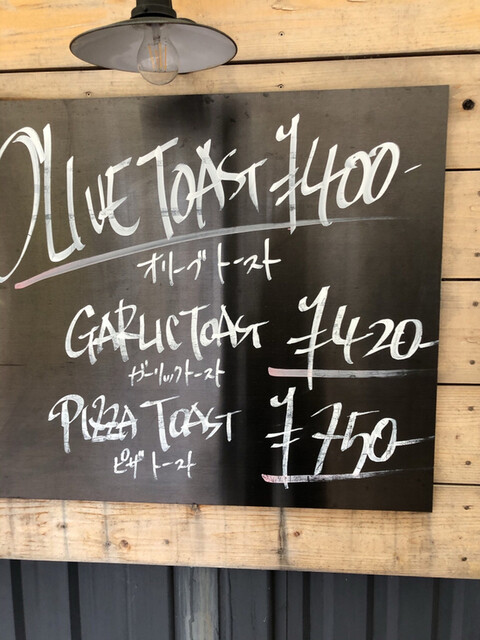 OLIVE TOAST ¥400-
オリーブトースト
GARLIC TOAST ¥420-
ガーリックトースト
PIZZA TOAST ¥750-
ピザトースト